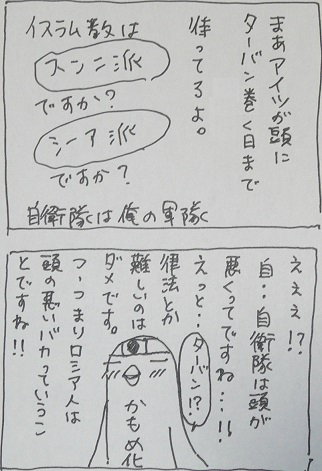 まあアイツが頭に
ターバン巻く日まで
待ってるよ。
イスラム教は
スンニ派
ですか?
シーア派
ですか?
自衛隊は俺の軍隊
えええ!?
自‥自衛隊は頭が
悪くってですね…!!
えっと‥
ターバン!?
律法とか
難しいのは
ダメです。
つ、つまりロシア人は
頭の悪いバカっていうこ
とですね!!
かもめ化